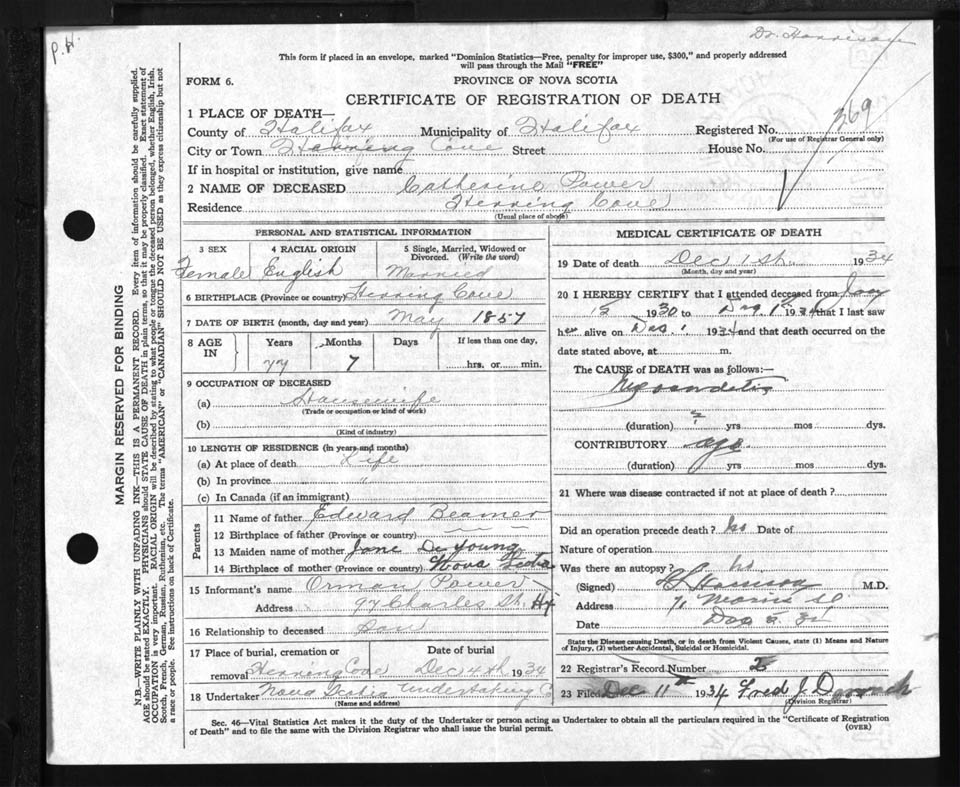 P.H.
Dr. Harrison
This form if placed in an envelope, marked "Dominion Statistics—Free, penalty for improper use, $300," and properly addressed
will pass through the Mail "FREE"
FORM 6.
PROVINCE OF NOVA SCOTIA
CERTIFICATE OF REGISTRATION OF DEATH
1 PLACE OF DEATH—
County of Halifax Municipality of Halifax Registered No. 369
(For use of Registrar General only)
City or Town Herring Cove Street House No.
If in hospital or institution, give name
2 NAME OF DECEASED Catherine Power
Residence Herring Cove
(Usual place of abode)
PERSONAL AND STATISTICAL INFORMATION
3 SEX 4 RACIAL ORIGIN 5 Single, Married, Widowed or
Divorced. (Write the word)
Female English Married
6 BIRTHPLACE (Province or country) Herring Cove
7 DATE OF BIRTH (month, day and year) May 1857
8 AGE IN Years Months Days If less than one day,
77 7 hrs. or min.
9 OCCUPATION OF DECEASED
(a) Housewife
(Trade or occupation or kind of work)
(b)
(Kind of industry)
10 LENGTH OF RESIDENCE (in years and months)
(a) At place of death Life
(b) In province "
(c) In Canada (if an immigrant)
Parents
11 Name of father Edward Beamer
12 Birthplace of father (Province or country)
13 Maiden name of mother Jane De Young
14 Birthplace of mother (Province or country) Nova Scotia
15 Informant's name Orman Power
Address 97 Charles St. Hfx
16 Relationship to deceased Son
17 Place of burial, cremation or Date of burial
removal Herring Cove Dec 4th 1934
18 Undertaker Nova Scotia Undertaking Co
(Name and address)
MEDICAL CERTIFICATE OF DEATH
19 Date of death Dec 1st 1934
(Month, day and year)
20 I HEREBY CERTIFY that I attended deceased from
1930 to Dec 1st 1934 that I last saw
her alive on Dec. 1 1934 and that death occurred on the
date stated above, at m.
The CAUSE of DEATH was as follows:—
Myocarditis
(duration) ? yrs mos dys.
CONTRIBUTORY age
(duration) yrs mos dys.
21 Where was disease contracted if not at place of death?
Did an operation precede death? no Date of
Nature of operation
Was there an autopsy? no
(Signed) Harrison M.D.
Address 71 Morris St.
Date Dec
State the Disease causing Death, or in death from Violent Causes, state (1) Means and Nature
of Injury, (2) whether Accidental, Suicidal or Homicidal.
22 Registrar's Record Number
23 Filed Dec 11th 1934 Fred J.
(Division Registrar)
Sec. 46—Vital Statistics Act makes it the duty of the Undertaker or person acting as Undertaker to obtain all the particulars required in the "Certificate of Registration
of Death" and to file the same with the Division Registrar who shall issue the burial permit.
(OVER)
MARGIN RESERVED FOR BINDING
N.B.—WRITE PLAINLY WITH UNFADING INK—THIS IS A PERMANENT RECORD. Every item of information should be carefully supplied.
AGE should be stated EXACTLY. PHYSICIANS should STATE CAUSE OF DEATH in plain terms, so that it may be properly classified. Exact statement of
OCCUPATION is very important. RACIAL ORIGIN will be described by stating to what people or tongue the deceased person belonged, whether English, Irish,
Scotch, French, German, Russian, Ruthenian, etc. The terms "AMERICAN" or "CANADIAN" SHOULD NOT BE USED as they express citizenship but not
a race or people. See instructions on back of Certificate.